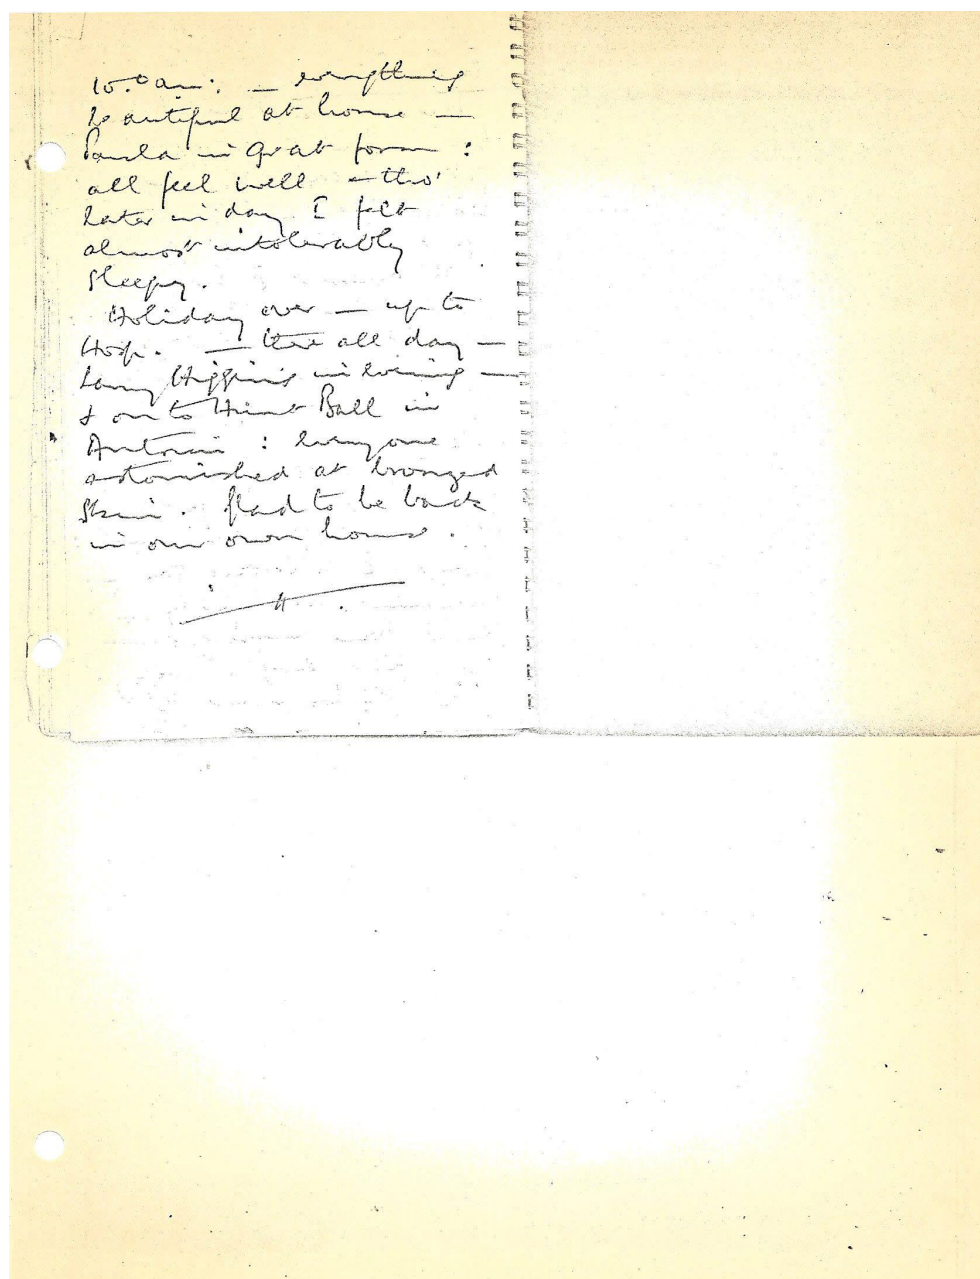 10.0 am: — everything
beautiful at home —
Paula in great form :
all feel well — tho'
later in day I felt
almost intolerably
sleepy.
Holiday over — up to
Hosp. — there all day —
Higgins in evening —
& on to Hunt Ball in
Antrim : everyone
astonished at bronzed
skin. Glad to be back
in our own home.